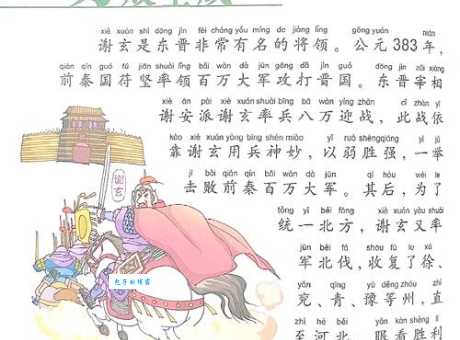 xiè xuán shì dōng jìn fēi cháng yǒu míng de jiàng lǐng gōng yuán nián
谢玄是东晋非常有名的将领。公元383年，
qián qín guó fú jiān shuài lǐng bǎi wàn dà jūn gōng dǎ jìn guó dōng jìn zǎi xiàng
前秦国苻坚率领百万大军攻打晋国。东晋宰相
xiè ān pài xiè xuán shuài bīng bā wàn yíng zhàn cǐ zhàn yī
谢安派谢玄率兵八万迎战，此战依
kào xiè xuán yòng bīng shén miào yǐ ruò shèng qiáng yì jǔ
靠谢玄用兵神妙，以弱胜强，一举
jī bài qián qín bǎi wàn dà jūn qí hòu wèi le
击败前秦百万大军。其后，为了
tǒng yī běi fāng xiè xuán yòu shuài
统一北方，谢玄又率
jūn běi fá shōu fù le xú
军北伐，收复了徐、
yǎn qīng yù děng zhōu zhí
兖、青、豫等州，直
zhì hé běi yǎn kàn shèng lì
至河北，眼看胜利
谢玄